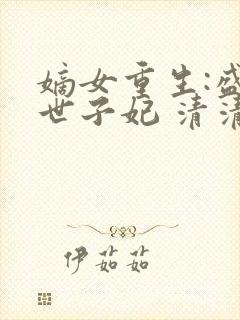 嫡女重生:盛
世子妃 清清
伊茹茹